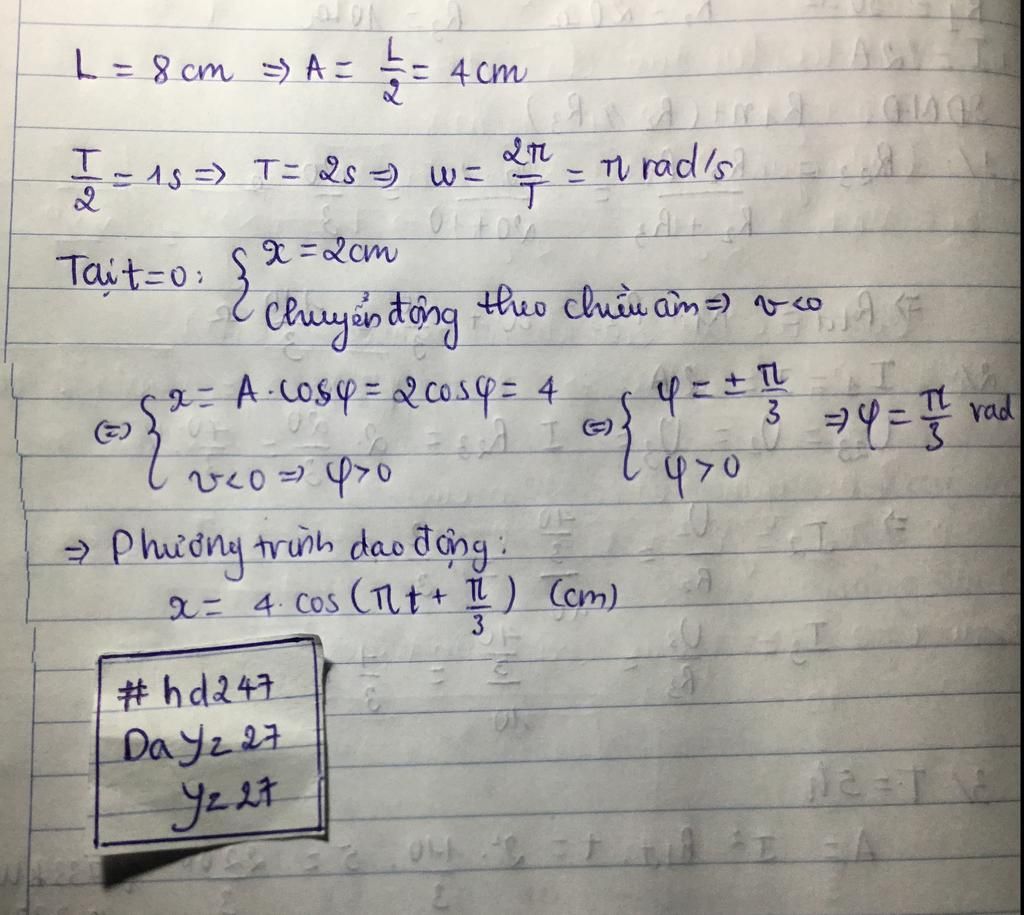 L = 8 cm ⇒ A = L/2 = 4 cm
T/2 = 1s ⇒ T = 2s ⇒ w = 2π/T = π rad/s
Tại t=0: { x = 2cm
chuyển động theo chiều âm ⇒ v<0
⇔ { x = A.cosφ = 2cosφ = 4 ⇔ { φ = ± π/3 ⇒ φ = π/3 rad
v<0 ⇒ φ>0 φ>0
⇒ Phương trình dao động:
x = 4. cos (πt + π/3) (cm)
#hd247
DaYz27
Yz27